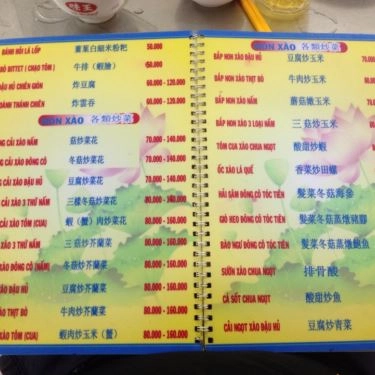 BÁNH HỎI LÁ LỐP 蔞葉白細米粉粑 50.000
BÒ BITTET ( CHẠO TÔM ) 牛排（蝦膾） 50.000
ĐẬU HỦ CHIÊN GIÒN 炸豆腐 60.000 - 120.000
HOÀNH THÁNH CHIÊN 炸雲吞 60.000 - 120.000
MÓN XÀO 各類炒菜
CẢI XÀO NẤM 菇炒菜花 70.000 - 140.000
CẢI XÀO ĐÔNG CÔ 冬菇炒菜花 70.000 - 140.000
CẢI XÀO ĐẬU HỦ 豆腐炒菜花 70.000 - 140.000
CẢI XÀO 3 THỨ NẤM 三樣冬菇炒菜花 80.000 - 160.000
CẢI XÀO TÔM (CUA) 蝦(蟹)肉炒菜花 80.000 - 160.000
XÀO 3 THỨ NẤM 三菇炒芥蘭菜 80.000 - 160.000
XÀO ĐÔNG CÔ 冬菇炒芥蘭菜 80.000 - 160.000
XÀO ĐẬU HỦ 豆腐炒芥蘭菜 80.000 - 160.000
XÀO THỊT BÒ 牛肉炒芥蘭菜 80.000 - 160.000
XÀO TÔM (CUA) 蝦肉炒玉米（蟹） 80.000 - 160.000
MÓN XÀO 各類炒菜
BẮP NON XÀO ĐẬU HỦ 豆腐炒玉米
BẮP NON XÀO THỊT BÒ 牛肉炒玉米
BẮP NON XÀO NẤM 蘑菇嫩玉米
BẮP NON XÀO 3 LOẠI NẤM 三菇炒玉米
TÔM CUA XÀO CHUA NGỌT 酸甜炒蝦
ỐC XÀO LÁ QUẾ 香菜炒田螺
HẢI SÂM ĐÔNG CÔ TÓC TIÊN 髮菜冬菇海參
GIÒ HEO ĐÔNG CÔ TÓC TIÊN 髮菜冬菇蒸燉豬腳
BÀO NGƯ ĐÔNG CÔ TÓC TIÊN 髮菜冬菇蒸燉鮑魚
SƯỜN XÀO CHUA NGỌT 排骨酸
CÁ SỐT CHUA NGỌT 酸甜炒魚
CẢI NGỌT XÀO ĐẬU HỦ 豆腐炒青菜